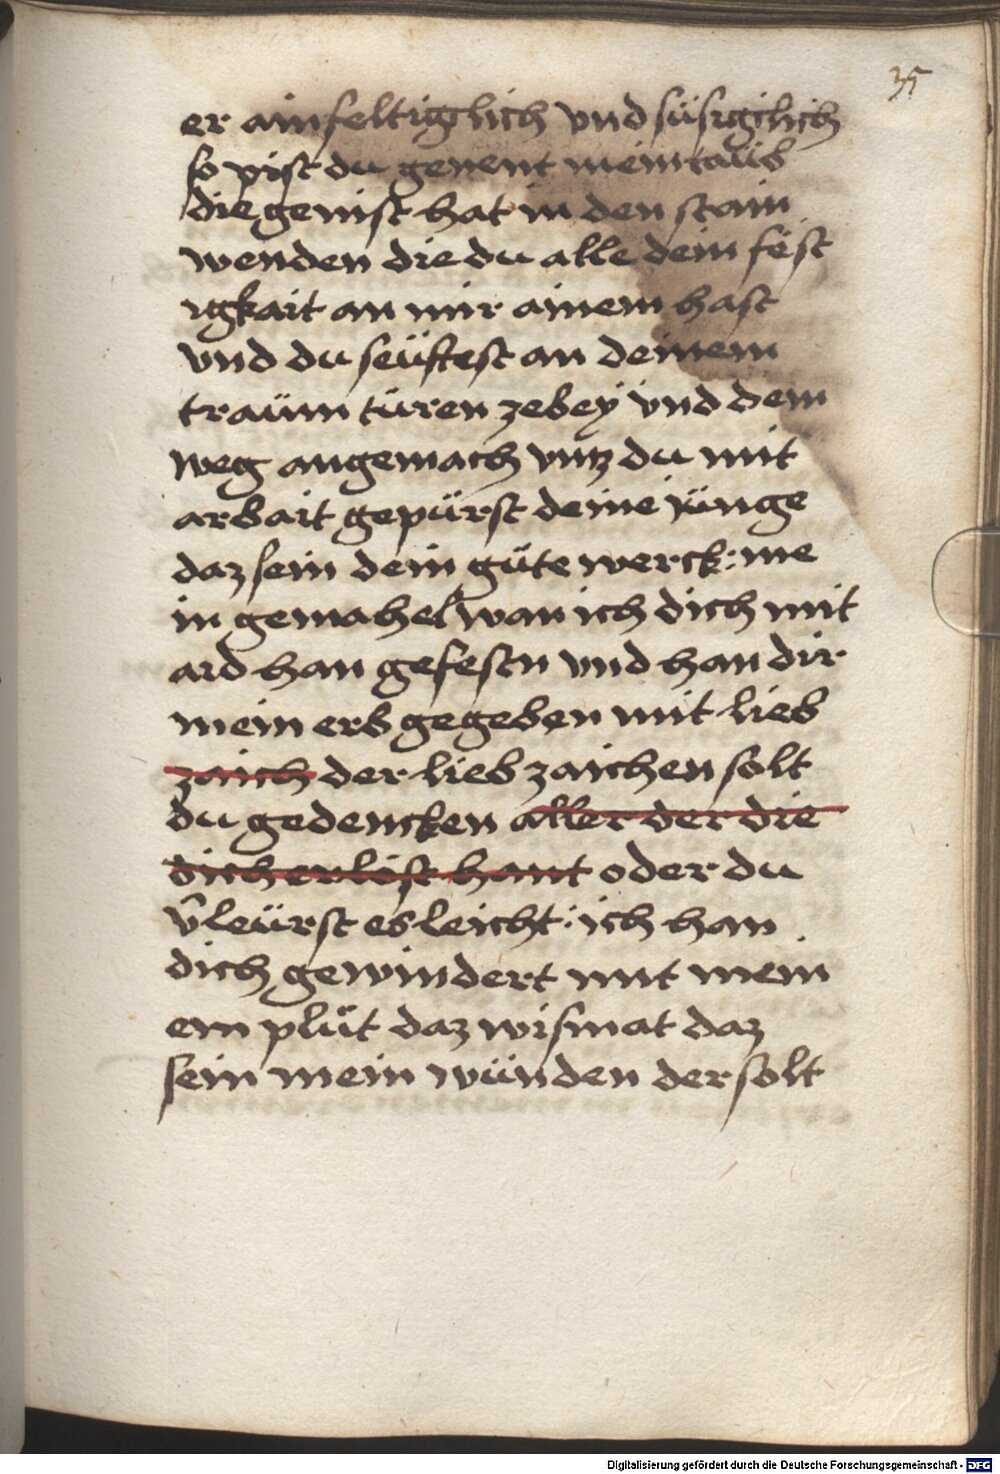 35
er ainfeltigklich vnd süsigclich
so pist du genent mein taub
die genist hat in den stain
wenden die du alle dein fest
igkait an mir ainem hast
vnd du seüftest an deinem
traüm türen zebey vnd dem
weg angemach vntz du mit
arbait gepürst deine jünge
daz sein dein güte werck: me
in gemahel wan ich dich mit
ard han gefestn vnd han dir
mein erb gegeben mit lieb
zaich der lieb zaichen solt
du gedencken aller der die
dich erlöst hant oder du
v̄leürst es leicht: ich han
dich gewindert mit mein
em plüt daz wismat daz
sein mein wünden der solt
Digitalisierung gefördert durch die Deutsche Forschungsgemeinschaft - DFG